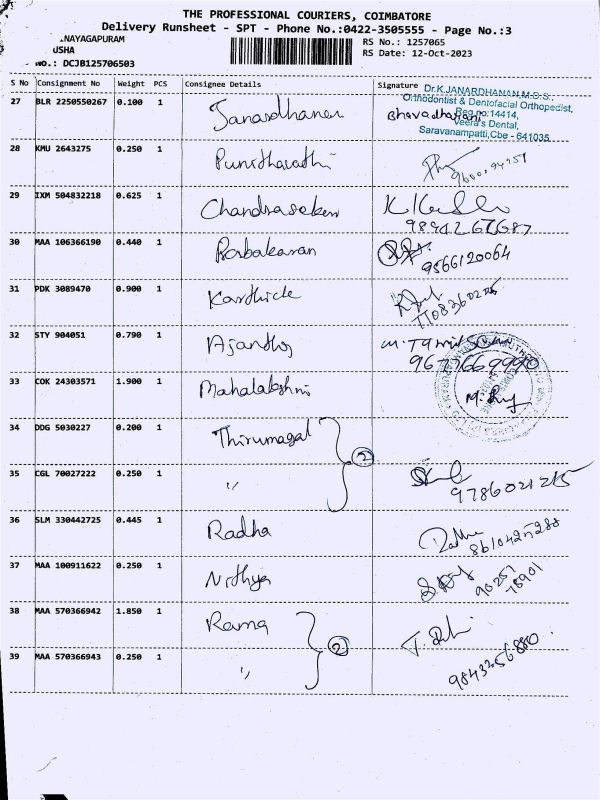 THE PROFESSIONAL COURIERS, COIMBATORE
Delivery Runsheet - SPT - Phone No.:0422-3505555 - Page No.:3
.NAYAGAPURAM
RS No.: 1257065
USHA
RS Date: 12-Oct-2023
NO.: DCJB125706503
S No Consignment No Weight PCS Consignee Details Signature
Dr.K.JANARDHANAN,M.D.S.,
Orthodontist & Dentofacial Orthopedist,
Reg no:14414,
Veera's Dental,
Saravanampatti,Cbe - 641035
27 BLR 2250550267 0.100 1 Janardhanan Bhavadharani
28 KMU 2643275 0.250 1 Punitharathi
29 IXM 504832218 0.625 1 Chandrasekar
9894267687
30 MAA 106366190 0.440 1 Barbakaran 9566120064
31 PDK 3089470 0.900 1 Karthick
32 STY 904051 0.790 1 Ajantha
9677669990
33 COK 24303571 1.900 1 Mahalakshmi
34 DDG 5030227 0.200 1 Thirumagal
2
35 CGL 70027222 0.250 1 "
9786021215
36 SLM 330442725 0.445 1 Radha
8610425288
37 MAA 100911622 0.250 1 Nithya
90257
78901
38 MAA 570366942 1.850 1 Rama
2
39 MAA 570366943 0.250 1 "
9843256880